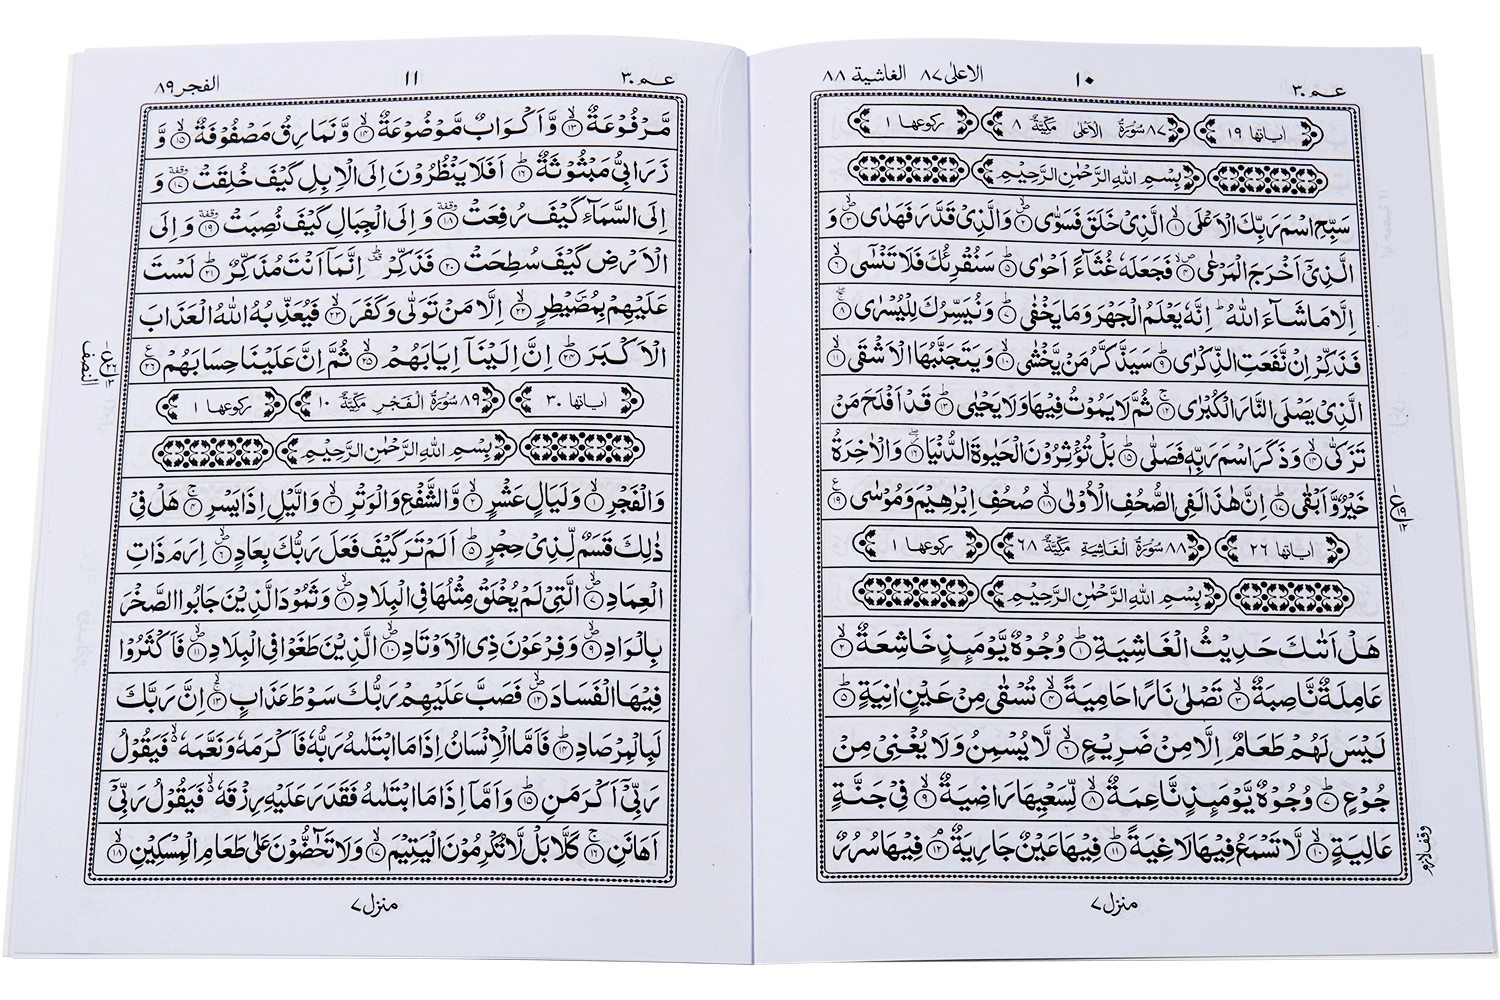 الاعلىٰ ٨٧ الغاشية ٨٨
١٠
عـم ٣٠
اياتها ١٩
٨٧ سُوْرَةُ الْاَعْلٰى مَكِّيَّةٌ ٨
ركوعها ١
بِسْمِ اللهِ الرَّحْمٰنِ الرَّحِيْمِ
سَبِّحِ اسْمَ رَبِّكَ الْاَعْلَى ۙ﴿١﴾ الَّذِيْ خَلَقَ فَسَوّٰى ۪ۙ﴿٢﴾ وَالَّذِيْ قَدَّرَ فَهَدٰى ۪ۙ﴿٣﴾ وَ
الَّذِيْٓ اَخْرَجَ الْمَرْعٰى ۪ۙ﴿٤﴾ فَجَعَلَهٗ غُثَآءً اَحْوٰى ؕ﴿٥﴾ سَنُقْرِئُكَ فَلَا تَنْسٰٓى ۙ﴿٦﴾
اِلَّا مَا شَآءَ اللهُ ؕ اِنَّهٗ يَعْلَمُ الْجَهْرَ وَمَا يَخْفٰى ؕ﴿٧﴾ وَنُيَسِّرُكَ لِلْيُسْرٰى ۚۖ﴿٨﴾
فَذَكِّرْ اِنْ نَّفَعَتِ الذِّكْرٰى ؕ﴿٩﴾ سَيَذَّكَّرُ مَنْ يَّخْشٰى ۙ﴿١٠﴾ وَيَتَجَنَّبُهَا الْاَشْقَى ۙ﴿١١﴾
الَّذِيْ يَصْلَى النَّارَ الْكُبْرٰى ۚ﴿١٢﴾ ثُمَّ لَا يَمُوْتُ فِيْهَا وَلَا يَحْيٰى ؕ﴿١٣﴾ قَدْ اَفْلَحَ مَنْ
تَزَكّٰى ۙ﴿١٤﴾ وَذَكَرَ اسْمَ رَبِّهٖ فَصَلّٰى ؕ﴿١٥﴾ بَلْ تُؤْثِرُوْنَ الْحَيٰوةَ الدُّنْيَا ۖ﴿١٦﴾ وَالْاٰخِرَةُ
خَيْرٌ وَّاَبْقٰى ؕ﴿١٧﴾ اِنَّ هٰذَا لَفِي الصُّحُفِ الْاُوْلٰى ۙ﴿١٨﴾ صُحُفِ اِبْرٰهِيْمَ وَمُوْسٰى ﴿١٩﴾
ع ١٩ ١٢
اياتها ٢٦
٨٨ سُوْرَةُ الْغَاشِيَةِ مَكِّيَّةٌ ٦٨
ركوعها ١
بِسْمِ اللهِ الرَّحْمٰنِ الرَّحِيْمِ
هَلْ اَتٰىكَ حَدِيْثُ الْغَاشِيَةِ ؕ﴿١﴾ وُجُوْهٌ يَّوْمَىِٕذٍ خَاشِعَةٌ ۙ﴿٢﴾
عَامِلَةٌ نَّاصِبَةٌ ۙ﴿٣﴾ تَصْلٰى نَارًا حَامِيَةً ۙ﴿٤﴾ تُسْقٰى مِنْ عَيْنٍ اٰنِيَةٍ ؕ﴿٥﴾
لَيْسَ لَهُمْ طَعَامٌ اِلَّا مِنْ ضَرِيْعٍ ۙ﴿٦﴾ لَّا يُسْمِنُ وَلَا يُغْنِيْ مِنْ
جُوْعٍ ؕ﴿٧﴾ وُجُوْهٌ يَّوْمَىِٕذٍ نَّاعِمَةٌ ۙ﴿٨﴾ لِّسَعْيِهَا رَاضِيَةٌ ۙ﴿٩﴾ فِيْ جَنَّةٍ
عَالِيَةٍ ۙ﴿١٠﴾ لَّا تَسْمَعُ فِيْهَا لَاغِيَةً ؕ﴿١١﴾ فِيْهَا عَيْنٌ جَارِيَةٌ ۘ﴿١٢﴾ فِيْهَا سُرُرٌ
وقف لازم
منزل ٧
الفجر ٨٩
١١
عـم ٣٠
مَّرْفُوْعَةٌ ۙ﴿١٣﴾ وَّاَكْوَابٌ مَّوْضُوْعَةٌ ۙ﴿١٤﴾ وَّنَمَارِقُ مَصْفُوْفَةٌ ۙ﴿١٥﴾ وَّ
زَرَابِيُّ مَبْثُوْثَةٌ ؕ﴿١٦﴾ اَفَلَا يَنْظُرُوْنَ اِلَى الْاِبِلِ كَيْفَ خُلِقَتْ وقفة ﴿١٧﴾ وَ
اِلَى السَّمَآءِ كَيْفَ رُفِعَتْ وقفة ﴿١٨﴾ وَاِلَى الْجِبَالِ كَيْفَ نُصِبَتْ وقفة ﴿١٩﴾ وَاِلَى
الْاَرْضِ كَيْفَ سُطِحَتْ ؕ﴿٢٠﴾ فَذَكِّرْ ۫ؕ اِنَّمَآ اَنْتَ مُذَكِّرٌ ؕ﴿٢١﴾ لَسْتَ
عَلَيْهِمْ بِمُصَۜيْطِرٍ ۙ﴿٢٢﴾ اِلَّا مَنْ تَوَلّٰى وَكَفَرَ ۙ﴿٢٣﴾ فَيُعَذِّبُهُ اللهُ الْعَذَابَ
الْاَكْبَرَ ؕ﴿٢٤﴾ اِنَّ اِلَيْنَآ اِيَابَهُمْ ۙ﴿٢٥﴾ ثُمَّ اِنَّ عَلَيْنَا حِسَابَهُمْ ﴿٢٦﴾
ع ٢٦ ١٣ النصف
اياتها ٣٠
٨٩ سُوْرَةُ الْفَجْرِ مَكِّيَّةٌ ١٠
ركوعها ١
بِسْمِ اللهِ الرَّحْمٰنِ الرَّحِيْمِ
وَالْفَجْرِ ۙ﴿١﴾ وَلَيَالٍ عَشْرٍ ۙ﴿٢﴾ وَّالشَّفْعِ وَالْوَتْرِ ۙ﴿٣﴾ وَالَّيْلِ اِذَا يَسْرِ ۚ﴿٤﴾ هَلْ فِيْ
ذٰلِكَ قَسَمٌ لِّذِيْ حِجْرٍ ؕ﴿٥﴾ اَلَمْ تَرَ كَيْفَ فَعَلَ رَبُّكَ بِعَادٍ ۪ۙ﴿٦﴾ اِرَمَ ذَاتِ
الْعِمَادِ ۪ۙ﴿٧﴾ الَّتِيْ لَمْ يُخْلَقْ مِثْلُهَا فِي الْبِلَادِ ۪ۙ﴿٨﴾ وَثَمُوْدَ الَّذِيْنَ جَابُوا الصَّخْرَ
بِالْوَادِ ۪ۙ﴿٩﴾ وَفِرْعَوْنَ ذِي الْاَوْتَادِ ۪ۙ﴿١٠﴾ الَّذِيْنَ طَغَوْا فِي الْبِلَادِ ۪ۙ﴿١١﴾ فَاَكْثَرُوْا
فِيْهَا الْفَسَادَ ۪ۙ﴿١٢﴾ فَصَبَّ عَلَيْهِمْ رَبُّكَ سَوْطَ عَذَابٍ ۚۙ﴿١٣﴾ اِنَّ رَبَّكَ
لَبِالْمِرْصَادِ ؕ﴿١٤﴾ فَاَمَّا الْاِنْسَانُ اِذَا مَا ابْتَلٰىهُ رَبُّهٗ فَاَكْرَمَهٗ وَنَعَّمَهٗ ۙ۬ فَيَقُوْلُ
رَبِّيْٓ اَكْرَمَنِ ؕ﴿١٥﴾ وَاَمَّآ اِذَا مَا ابْتَلٰىهُ فَقَدَرَ عَلَيْهِ رِزْقَهٗ ۙ۬ فَيَقُوْلُ رَبِّيْٓ
اَهَانَنِ ۚ﴿١٦﴾ كَلَّا بَلْ لَّا تُكْرِمُوْنَ الْيَتِيْمَ ۙ﴿١٧﴾ وَلَا تَحٰٓضُّوْنَ عَلٰى طَعَامِ الْمِسْكِيْنِ ۙ﴿١٨﴾
منزل ٧